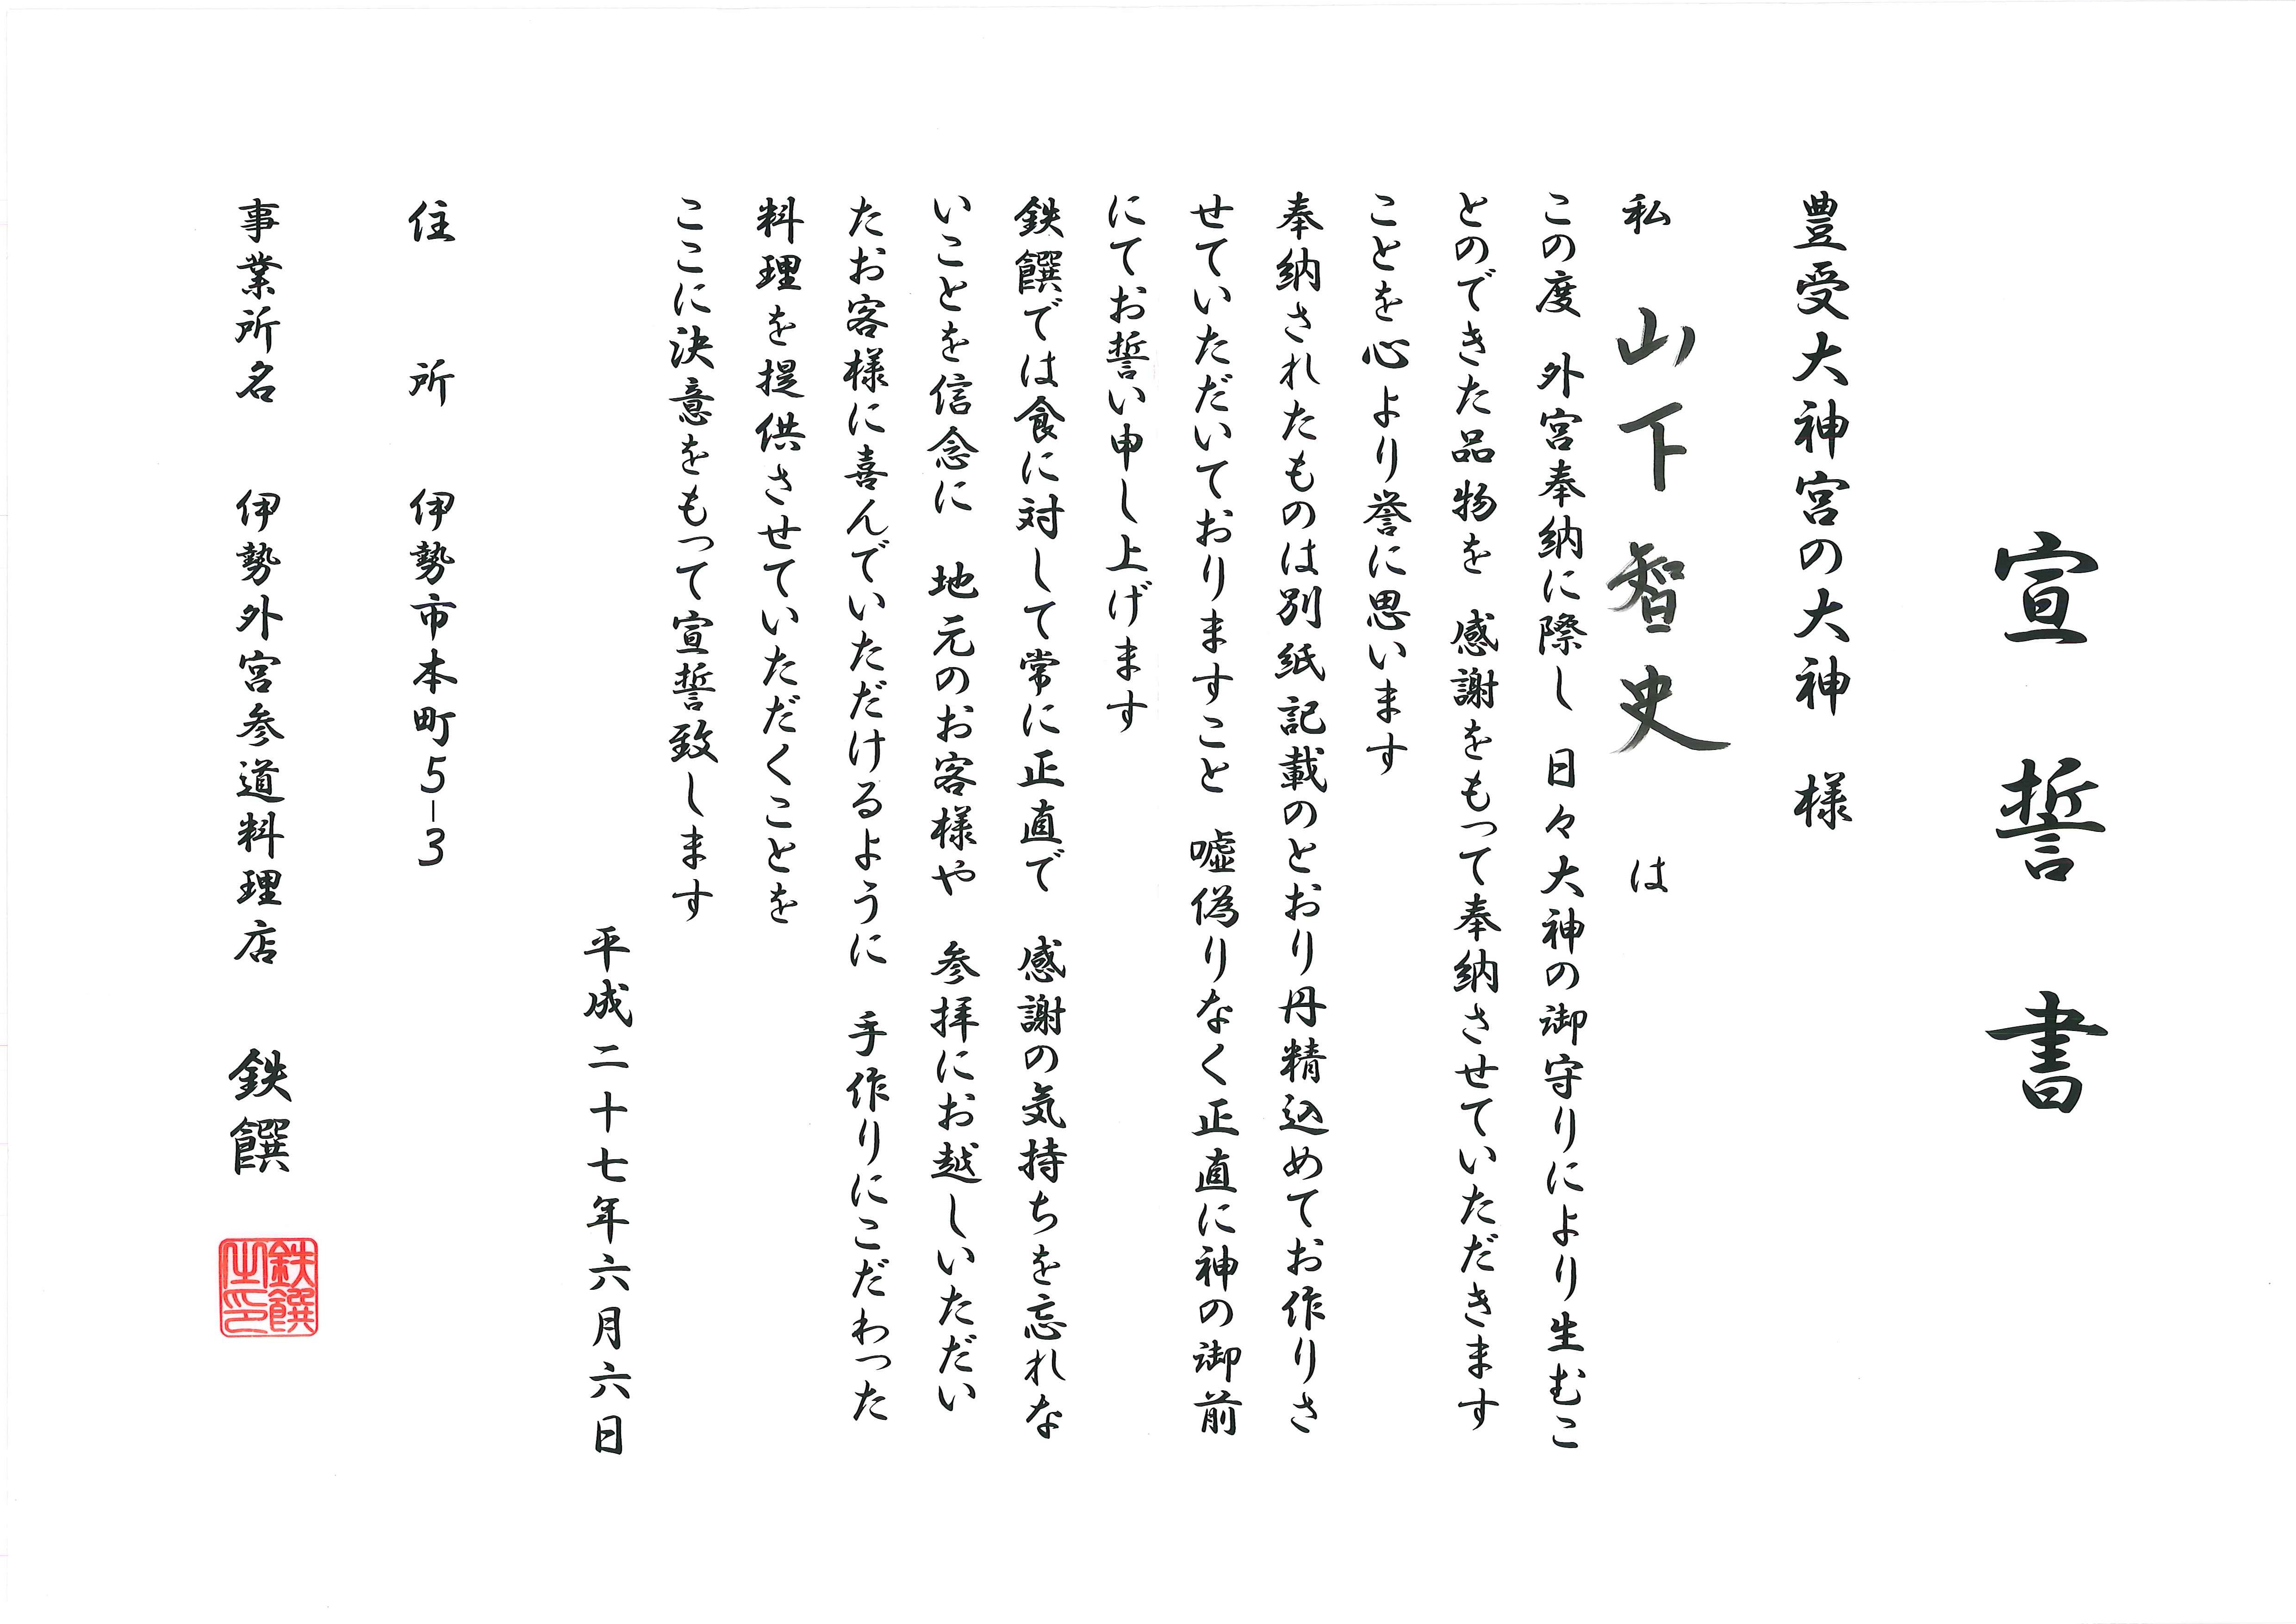 宣誓書
豊受大神宮の大神 様
私 山下智史 は
この度 外宮奉納に際し 日々大神の御守りにより生むこ
とのできた品物を 感謝をもって奉納させていただきます
ことを心より誉に思います
奉納されたものは別紙記載のとおり丹精込めてお作りさ
せていただいておりますこと 嘘偽りなく正直に神の御前
にてお誓い申し上げます
鉄饌では食に対して常に正直で 感謝の気持ちを忘れな
いことを信念に 地元のお客様や 参拝にお越しいただい
たお客様に喜んでいただけるように 手作りにこだわった
料理を提供させていただくことを
ここに決意をもって宣誓致します
平成二十七年六月六日
住所 伊勢市本町5-3
事業所名 伊勢外宮参道料理店 鉄饌
鉄饌
之印